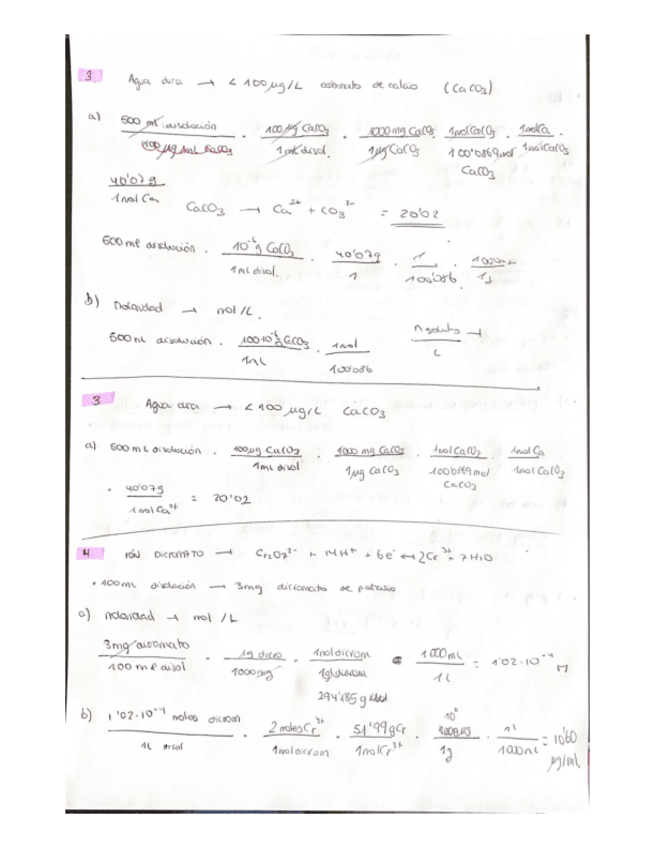 3. Agua dura → < 100 µg/L carbonato de calcio (CaCO3)
a) 500 ml disolución / 100 µg/mL CaCO3 · 100 µg CaCO3 / 1 ml disol. · 1000 mg CaCO3 / 1 µg CaCO3 · 1 mol CaCO3 / 100'0869 mol CaCO3 · 1 mol Ca / 1 mol CaCO3 ·
40'07 g / 1 mol Ca
CaCO3 → Ca2+ + CO3 2- = 20'02
500 ml disolución · 10-6 g CaCO3 / 1 ml disol. · 40'07 g / 1 · 1 / 100'086 · / 1 g
b) Molaridad → mol/L.
500 mL disolución · 100·10-6 g CaCO3 / 1 mL · 1 mol / 100'086 n soluto → / L
3 Agua dura → < 100 µg/L CaCO3
a) 500 mL disolución · 100 µg CaCO3 / 1 mL disol · 1000 mg CaCO3 / 1 µg CaCO3 · 1 mol CaCO3 / 100'0869 mol CaCO3 · 1 mol Ca / 1 mol CaCO3
· 40'07 g / 1 mol Ca2+ = 20'02
4 IÓN DICROMATO → Cr2O7 2- + 14H+ + 6e- ↔ 2Cr 3+ + 7H2O
· 100 mL disolución → 3 mg dicromato de potasio
a) Molaridad → mol/L
3 mg dicromato / 100 ml disol · 1 g dicro / 1000 mg · 1 mol dicrom / 294'185 g · 1000 mL / 1 L = 1'02·10-4 M
b) 1'02·10-4 moles dicrom / 1 L disol · 2 moles Cr 3+ / 1 mol dicrom · 51'99 g Cr / 1 mol Cr 3+ · 10 6 µg / 1 g · 1 L / 1000 mL = 10'60 µg/mL